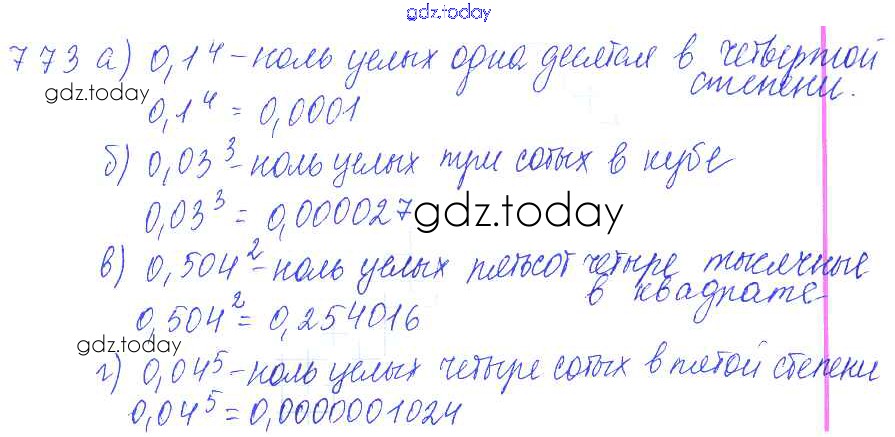 gdz.today
773 а) 0,1⁴ - ноль целых одна десятая в четвертой
степени.
gdz.today
0,1⁴ = 0,0001
б) 0,03³ - ноль целых три сотых в кубе
0,03³ = 0,000027 gdz.today
в) 0,504² - ноль целых пятьсот четыре тысячные
в квадрате
0,504² = 0,254016
gdz.today
г) 0,04⁵ - ноль целых четыре сотых в пятой степени
0,04⁵ = 0,0000001024